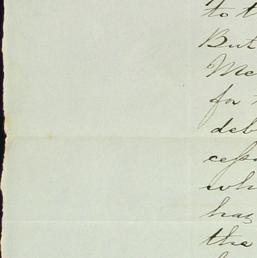 to t
But
Me
for
deb
cess
whi
has
the